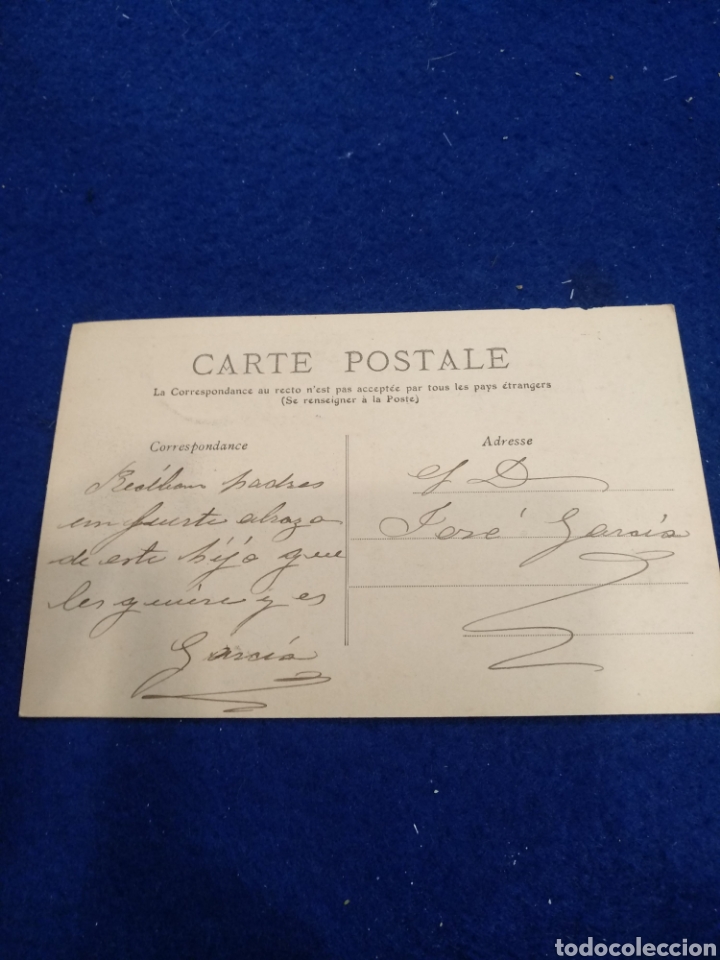 CARTE POSTALE
La Correspondance au recto n'est pas acceptée par tous les pays étrangers
(Se renseigner à la Poste)
Correspondance
Reciban padres
un fuerte abrazo
de este hijo que
les quiere y es
García
Adresse
S D
José García
todocoleccion